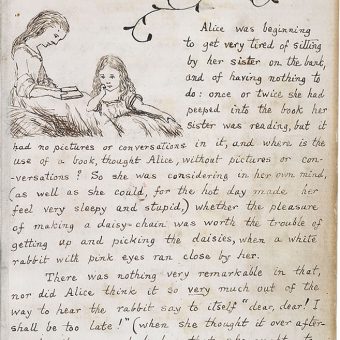 Alice was beginning
to get very tired of sitting
by her sister on the bank,
and of having nothing to
do: once or twice she had
peeped into the book her
sister was reading, but it
had no pictures or conversations in it, and where is the
use of a book, thought Alice, without pictures or con-
-versations? So she was considering in her own mind,
(as well as she could, for the hot day made her
feel very sleepy and stupid,) whether the pleasure
of making a daisy-chain was worth the trouble of
getting up and picking the daisies, when a white
rabbit with pink eyes ran close by her.
There was nothing very remarkable in that,
nor did Alice think it so very much out of the
way to hear the rabbit say to itself "dear, dear! I
shall be too late!" (when she thought it over after-